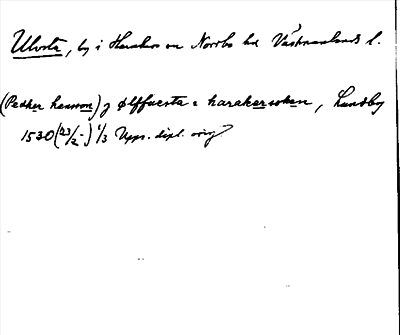 Ulvsta, by i Harakers sn Norrbo hd Västmanlands l.
(Pedher hanson) j Ølffuesta i harakersoken, Lundby
1530 (23/2-) 1/3 Upps. dipl. orig